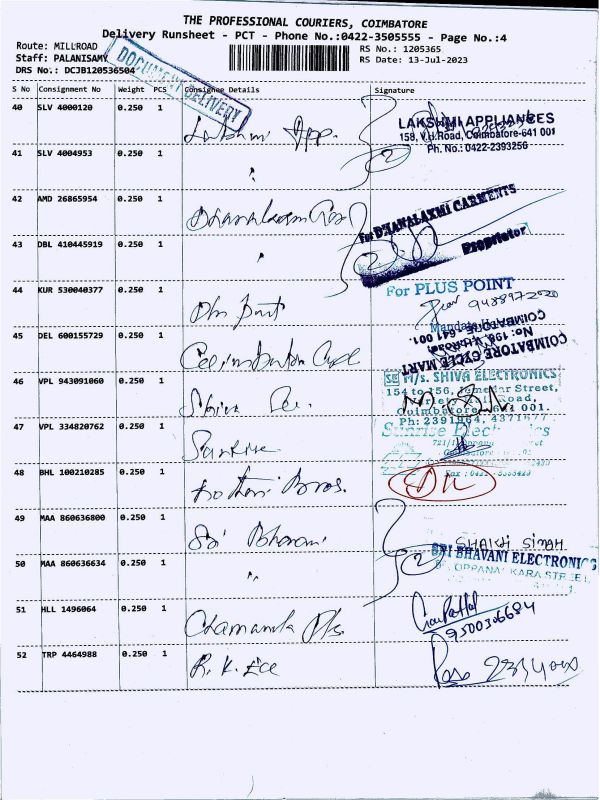 THE PROFESSIONAL COURIERS, COIMBATORE
Delivery Runsheet - PCT - Phone No.:0422-3505555 - Page No.:4
Route: MILLROAD
RS No.: 1205365
Staff: PALANISAMY
RS Date: 13-Jul-2023
DRS No.: DCJB120536504
DOCUMENT DELIVERY
S No Consignment No Weight PCS Consignee Details Signature
40 SLV 4000120 0.250 1 Lakshmi App.
LAKSHMI APPLIANCES
158, V.H.Road, Coimbatore-641 001
Ph. No.: 0422-2393256
41 SLV 4004953 0.250 1 "
2
42 AMD 26865954 0.250 1 Dhanalaxmi
For DHANALAXMI GARMENTS
Proprietor
43 DBL 410445919 0.250 1 "
2
44 KUR 530040377 0.250 1
For PLUS POINT
9488972020
45 DEL 600155729 0.250 1 Coimbatore Cycle
COIMBATORE CYCLE MART
No: 196, V.H.Road,
COIMBATORE - 641 001.
46 VPL 943091060 0.250 1 Shiva
M/s. SHIVA ELECTRONICS
154 to 156, Street,
Road,
Coimbatore 641 001.
Ph: 2391464, 4371677
47 VPL 334820762 0.250 1 Sunrise
Sunrise Electronics
48 BHL 100210285 0.250 1 Kothari Bros.
49 MAA 860636800 0.250 1 Sri Bhavani
SINGH
SRI BHAVANI ELECTRONICS
OPPANAKARA STREET
50 MAA 860636634 0.250 1 "
2
51 HLL 1496064 0.250 1
9500306684
52 TRP 4464988 0.250 1 R.K.